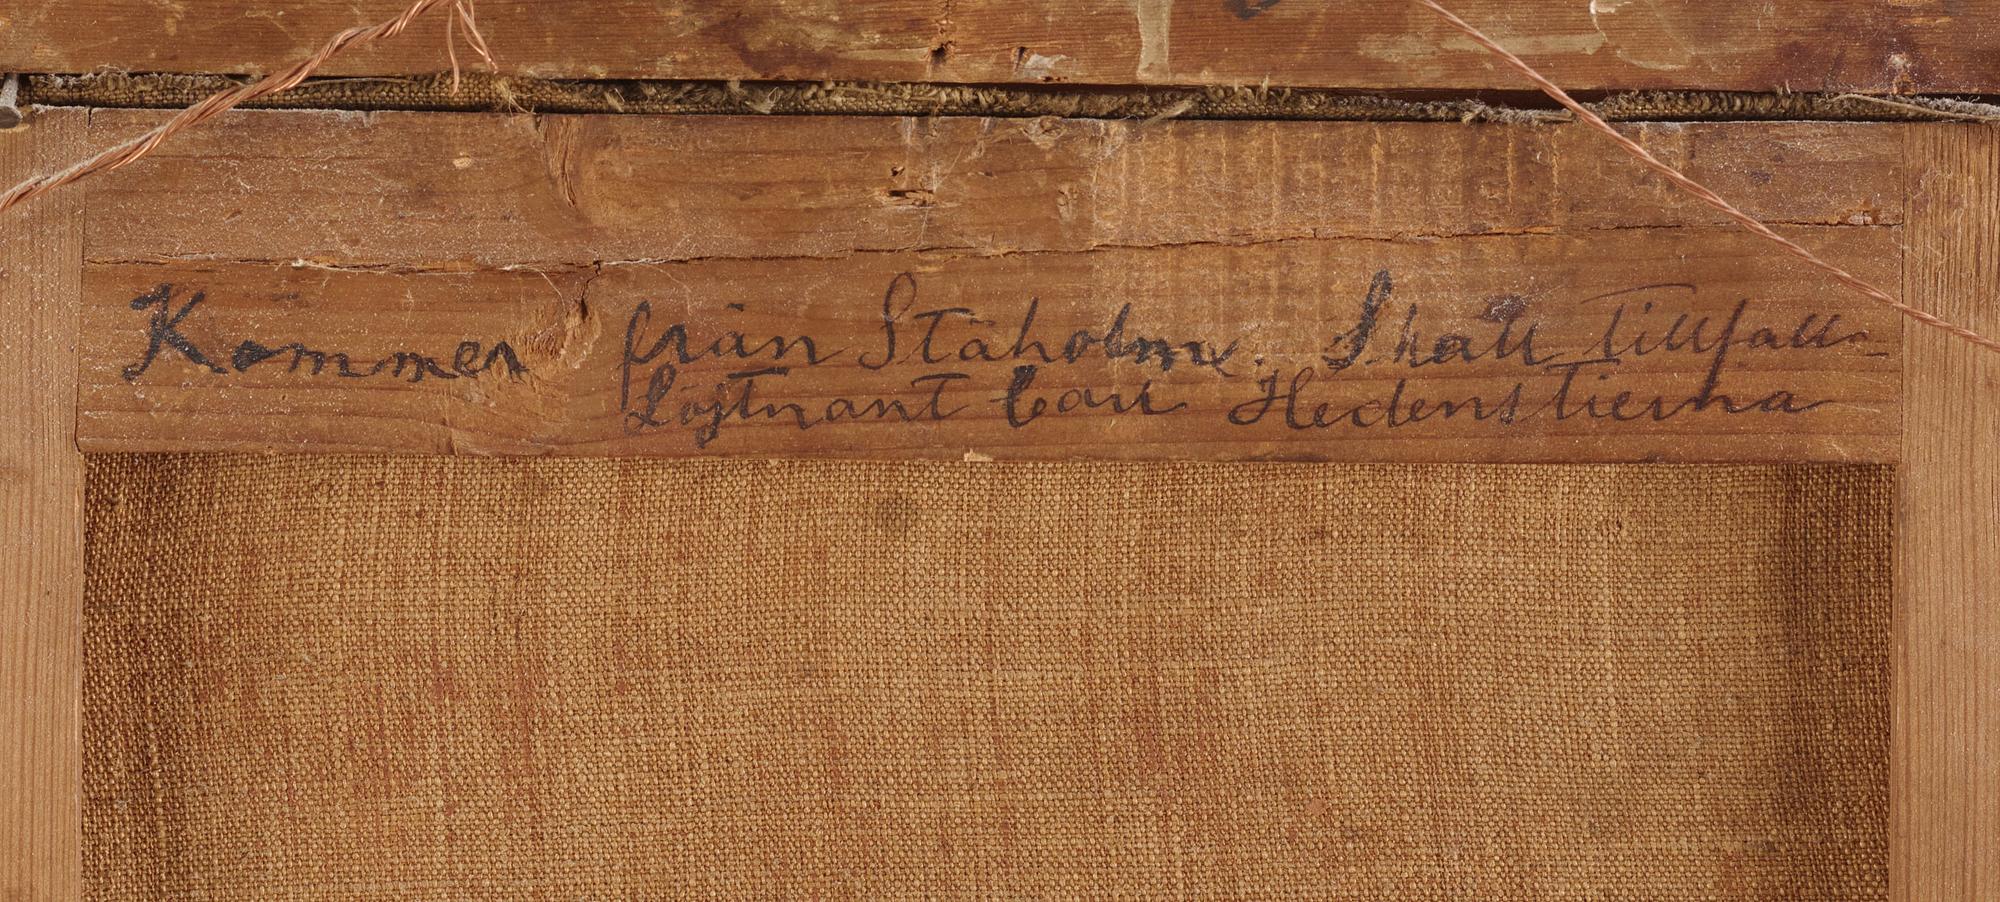 Kommer från Ståholm. Skall Tillfall-
Löjtnant Carl Hedenstierna